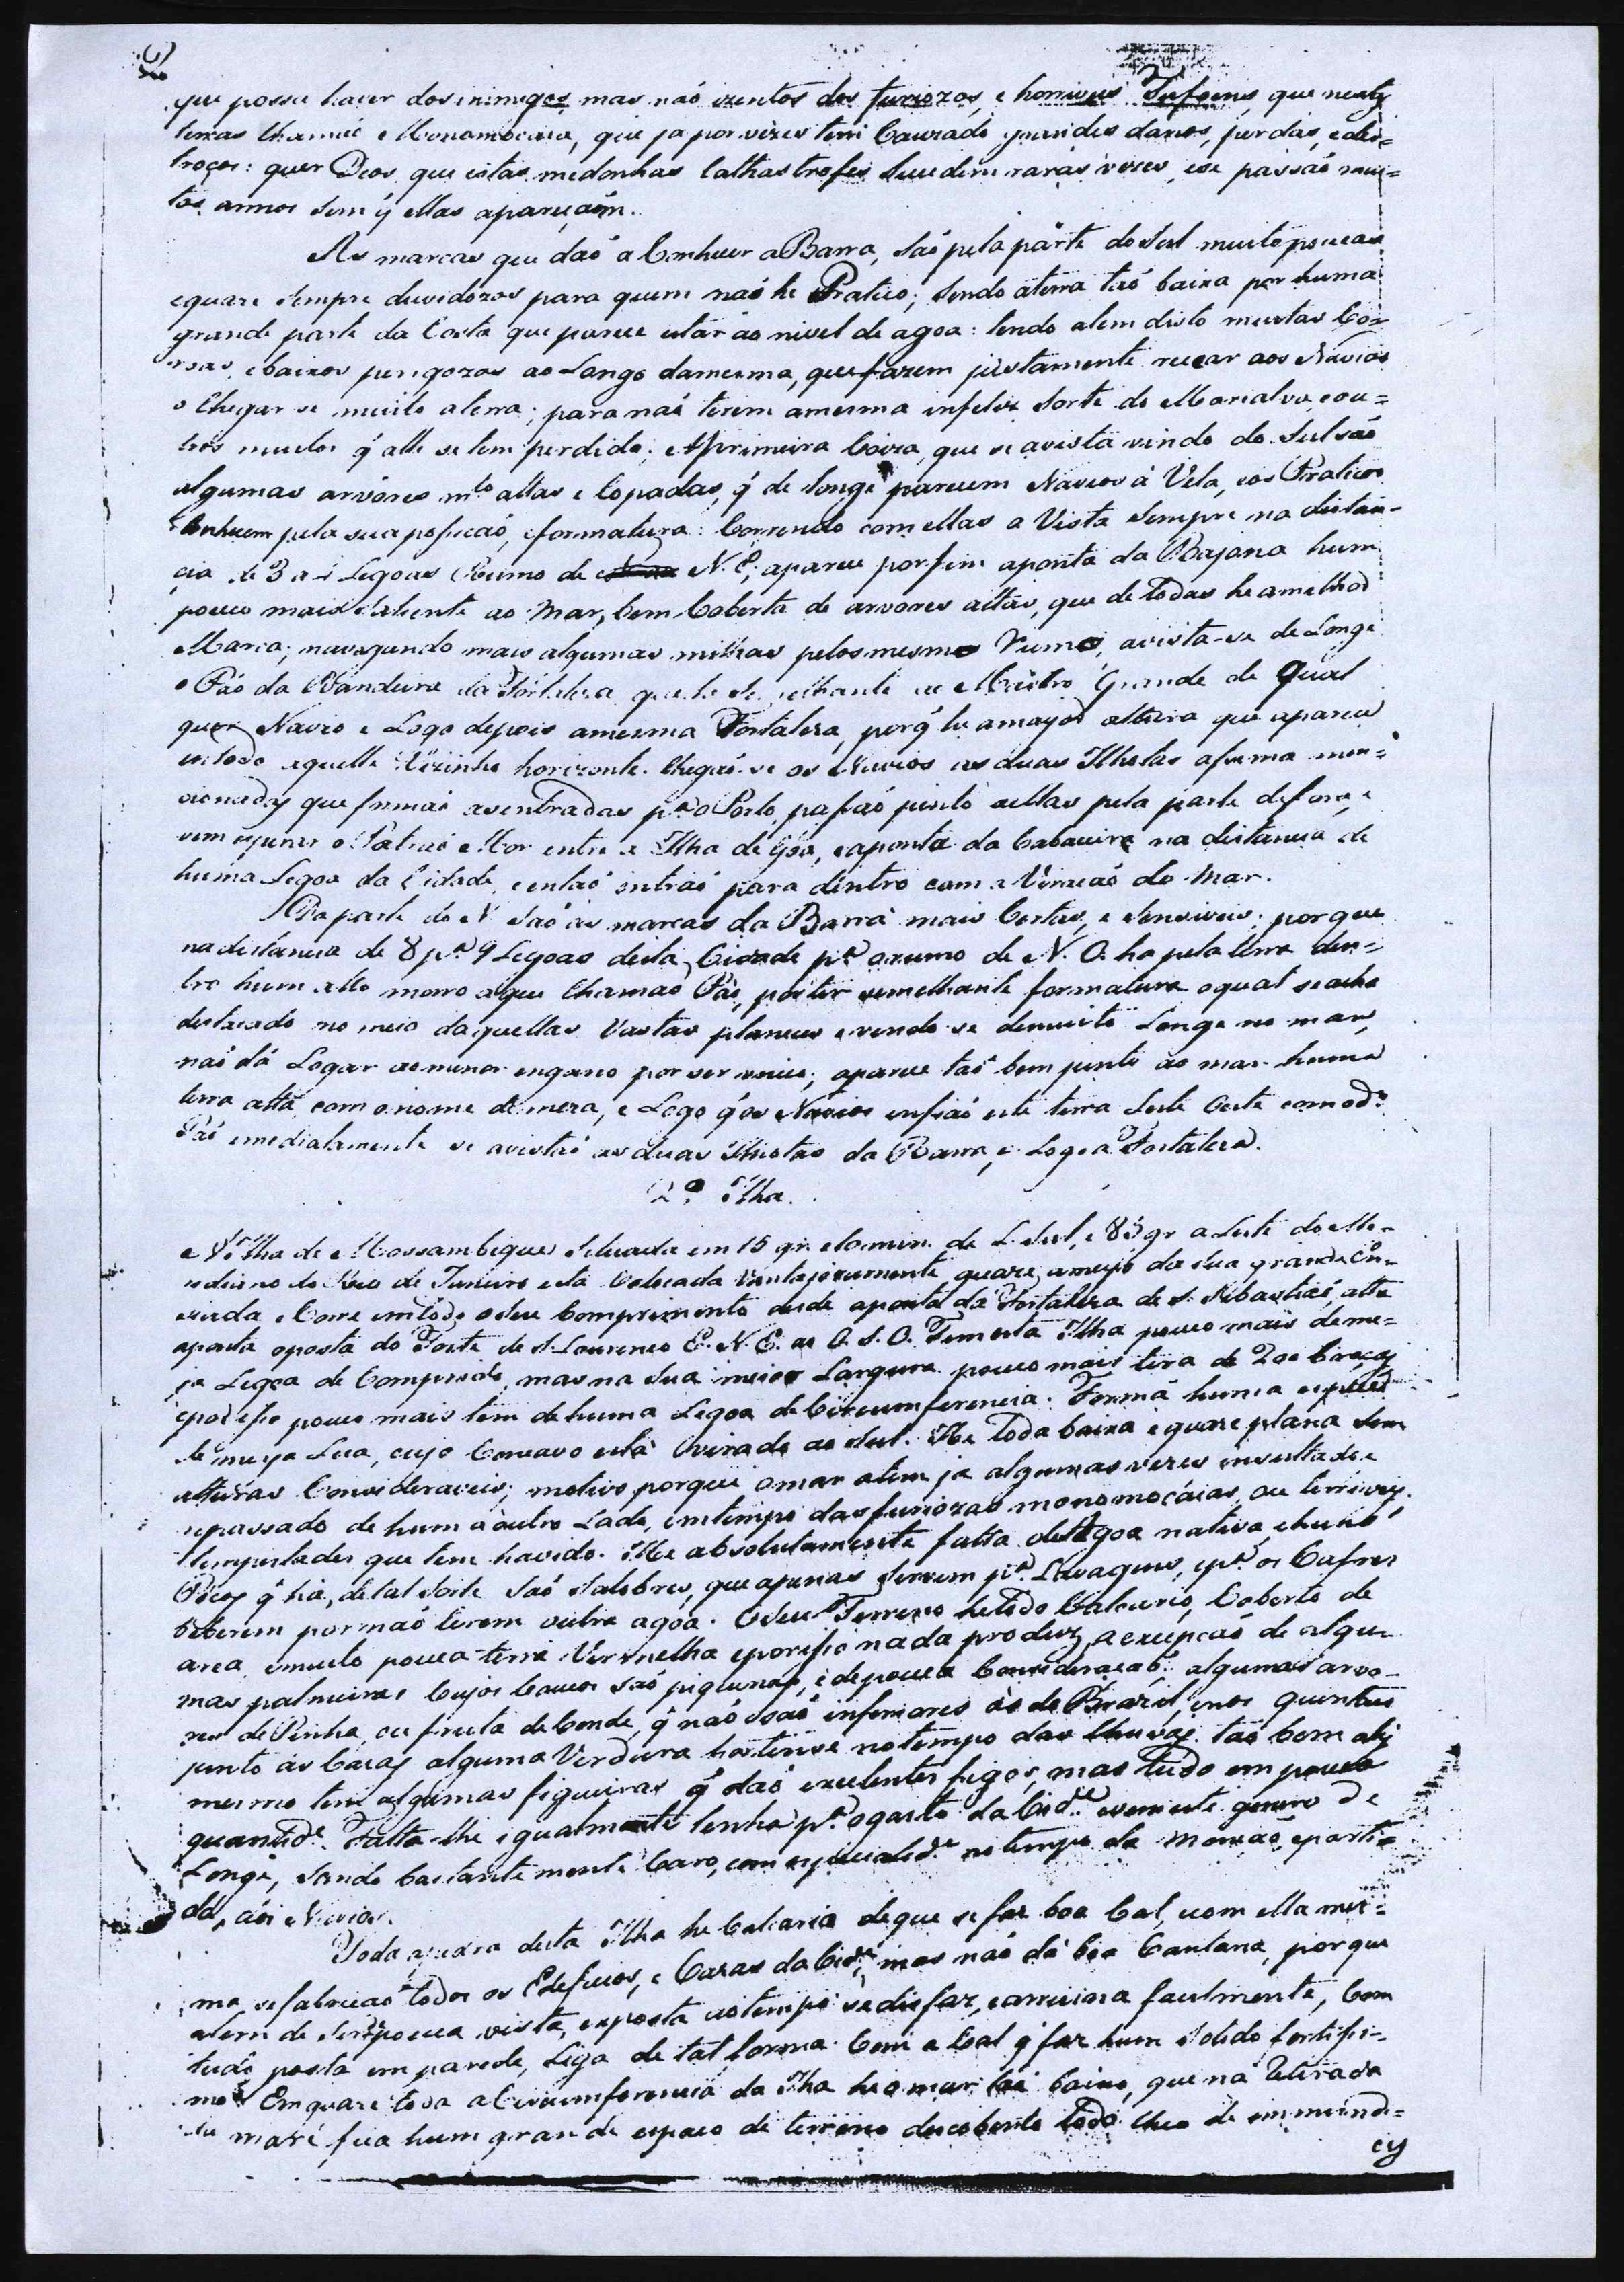 que possa haver dos inimigos, mas naó izentos dos furiozos, e horriveis Tufoens, que nestas
terras chamaó Monomocaia, que ja por vezes tem Cauzado grandes danos, perdas, e des=
troços: quer Deos que estas medonhas Cathastrofes sucedem raras vezes, e se passaó mui=
tos annos sem q̃ ellas apareçaõm.
As marcas que daó a Conhecer a Barra, saó pela parte do Sul muito poucas
e quaze sempre duvidozas para quem naó he Pratico; sendo a terra taó baixa por huma
grande parte da Costa que parece estar ao nivel de agoa: tendo alem disto muitas Có=
roas, e baixos perigozos ao Longo da mesma, que fazem justamente recear aos Navios
o Chegar se muito a terra; para naó terem a mesma infeliz sorte do Marialva, e ou=
tros muitos q̃ alli se tem perdido. A primeira Coiza, que se avista vindo do Sul saó
algumas arvores m.to altas e Copadas, q̃ de longe parecem Navios à Vela, e os Praticos
Conhecem pela sua posicaó, e formatura: Correndo com ellas a Vista sempre na distan=
cia de 3 a 4 Legoas Rumo de N. E, aparece por fim a ponta da Bajona hum
pouco mais saliente ao Mar, bem Coberta de arvores altas, que de todas he a melhor
Marca; navegando mais algumas milhas pelo mesmo Rumo, avista-se de Longe
o Páo da Bandeira da Fortaleza que he semelhante ao Mastro Grande de qual
quer Navio e Logo depois a mesma Fortaleza, porq̃ he a mayor altura que aparece
em todo aquelle Vizinho horizonte. Chegaó-se os Navios as duas Ilhotas asima men=
cionadas que formaó as entradas p.a o Porto, passaó junto a ellas pela parte de fora, e
vem esperar o Patraó Mor entre a Ilha de Goa, e a ponta da Cabaceira na distancia de
huma Legoa da Cidade, e entaó entraó para dentro com a Viraçaó do Mar.
Da parte do N. saó as marcas da Barra mais Certas, e sensiveis; porque
na distancia de 8 p.a 9 Legoas desta Cidade p.a o rumo de N. O. ha pela terra den=
tro hum alto morro a que Chamaó Páo, por ter semelhante formatura o qual se acha
destacado no meio daquellas Vastas planicies e vendo-se de muito Longe no mar,
naó dá Logar ao menor engano por ser unico; aparece taó bem junto ao mar huma
terra alta, com o nome de meza, e Logo q̃ os Navios enfiaó esta terra Leste Oeste com o d.o
Páo immediatamente se avistaó as duas Ilhotas da Barra, e Logo a Fortaleza.
2.a Ilha.
A Ilha de Mossambique Situada em 15 gr. e min. de L. Sul, e 83 gr a Leste do Me=
ridiano do Rio de Janeiro esta Colocada Vantajozamente, quaze a meyo da sua grande En=
ceada e Corre em todo o seu Comprimento desde a ponta da Fortaleza de S. Sebastiaó, athe
a ponta oposta do Forte de S. Lourenco E. N. E. ao O. S. O. Tem esta Ilha pouco mais de me=
ja Legoa de Comprido, mas na sua maior Largura pouco mais tera de 200 braças
e por isso pouco mais tem de huma Legoa de Circumferencia. Forma huma especie
de meya Lua, cujo Concavo está virado ao Sul. He toda baixa e quaze plana sem
alturas Consideraveis; motivo porque o mar a tem ja algumas vezes insultado e
repassado de hum a outro Lado, em tempo das furiozas monomocáias, ou terriveis
tempestades que tem havido. He absolutamente falta de Agoa nativa, e huns
Poços q̃ ha, de tal sorte saó salobres, que apenas servem p.a Lavagens, e p.a os Cafres
beberem por naó terem outra agoa. O seu Terreno he todo Calcario, Coberto de
area, e muito pouca terra Vermelha e por isso nada produz, a excepcaó de algu=
mas palmeiras Cujos Cocos saó piquenos, e de pouca Consideracaó: algumas arvo=
res de Pinha, ou fruta de Conde, q̃ naó saó inferiores ás do Brazil, e nos quintaes
junto ás Cazas alguma Verdura hortense no tempo das Chuvas, taó bem ahi
mesmo tem algumas figueiras q̃ daó excelentes figos, mas tudo em pouca
quantid.e Falta-lhe igualmente lenha p.a o gasto da Cid.e e vem este genero de
Longe, sendo bastantemente Caro, com especialid.e no tempo da monçaó, e parti=
da, dos Navios.
Toda a pedra desta Ilha he Calcaria de que se faz boa Cal, e com ella mes=
ma se fabricaó todos os Edeficios, e Cazas da Cid.e, mas naó dá boa Cantaria, porque
alem de ser de pouca vista, exposta ao tempo se disfaz, e arruina facilmente, Com
tudo posta em parede, Liga de tal forma Com a Cal q̃ faz hum solido fortissi=
mo. Em quaze toda a Circumferencia da Ilha he o mar taó baixo, que na retirada
da maré, fica hum grande espaco de terreno descoberto todo cheo de immundi=
cij